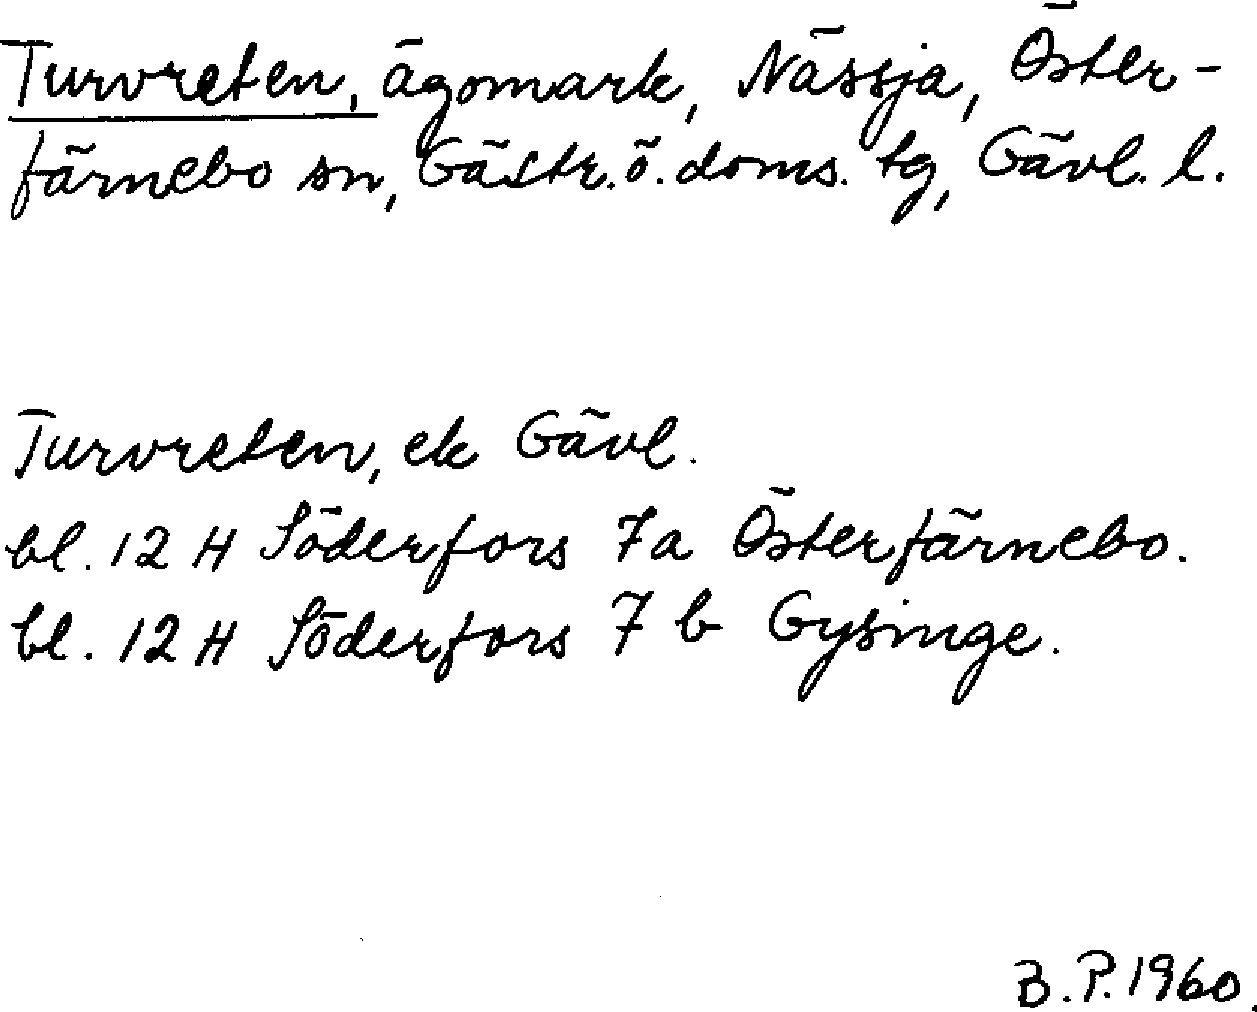 Turvreten, ägomark, Nässja, Öster-
färnebo sn, Gästr. ö. doms. tg, Gävl. l.
Turvreten, ek Gävl.
bl. 12 H Söderfors 7a Österfärnebo.
bl. 12 H Söderfors 7 b Gysinge.
B.P. 1960.